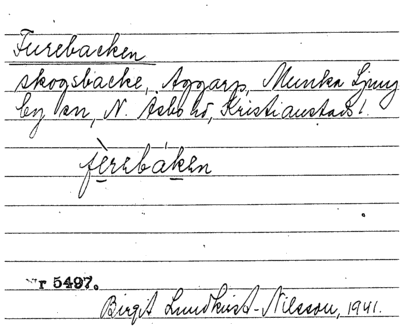 Furebacken
skogsbacke, Aggarp, Munka Ljung
by sn, N. Åsbo hd, Kristianstads l.
fèrebáken
Nr 5497.
Birgit Lundkvist-Nilsson, 1941.